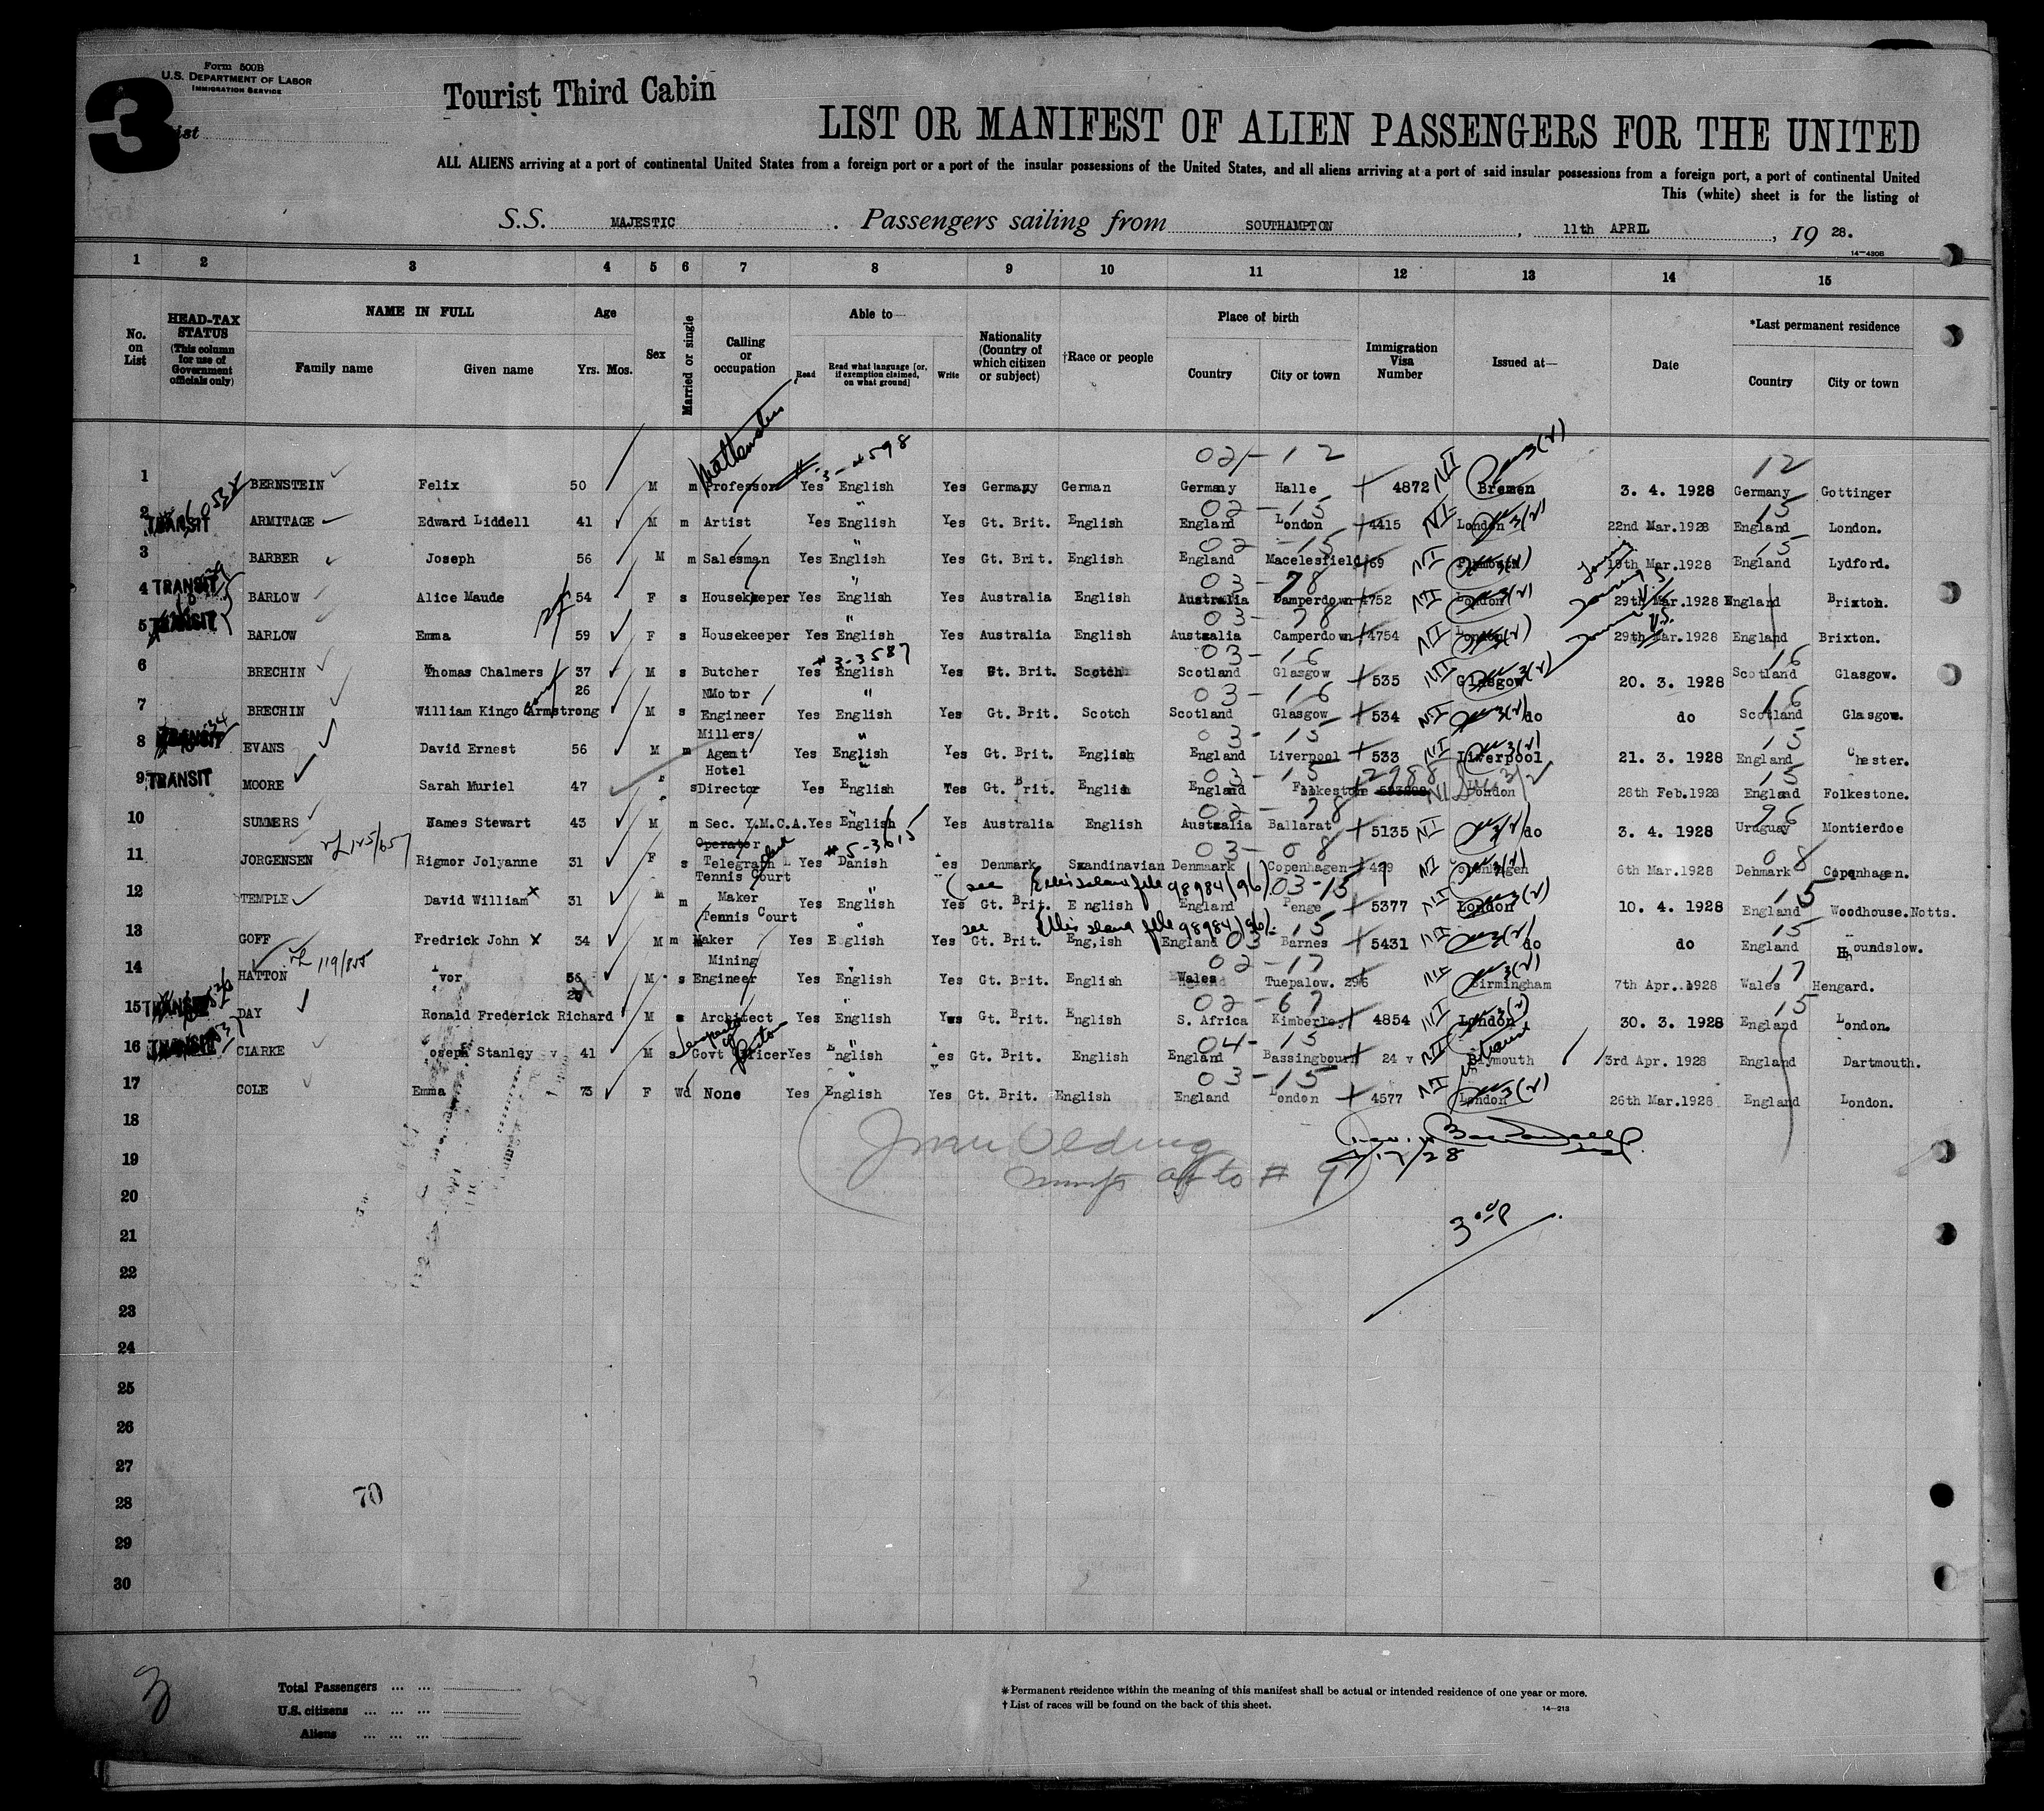 Form 500B
U.S. DEPARTMENT OF LABOR
IMMIGRATION SERVICE
3
List
Tourist Third Cabin
LIST OR MANIFEST OF ALIEN PASSENGERS FOR THE UNITED
ALL ALIENS arriving at a port of continental United States from a foreign port or a port of the insular possessions of the United States, and all aliens arriving at a port of said insular possessions from a foreign port, a port of continental United
This (white) sheet is for the listing of
S.S. MAJESTIC. Passengers sailing from SOUTHAMPTON, 11th APRIL, 19 28.
14-430B
1 2 3 4 5 6 7 8 9 10 11 12 13 14 15
No. on List
HEAD-TAX STATUS (This column for use of Government officials only)
NAME IN FULL Family name Given name
Age Yrs. Mos.
Sex
Married or single
Calling or occupation
Able to— Read Read what language [or, if exemption claimed, on what ground] Write
Nationality (Country of which citizen or subject)
†Race or people
Place of birth Country City or town
Immigration Visa Number
Issued at—
Date
*Last permanent residence Country City or town
3-4598 02-12 12
1 BERNSTEIN Felix 50 M m Professor Yes English Yes Germany German Germany Halle 4872 Bremen 3. 4. 1928 Germany Gottinger
02-15 15
2 TRANSIT ARMITAGE Edward Liddell 41 M m Artist Yes English Yes Gt. Brit. English England London 4415 NI London 22nd Mar.1928 England London.
02-15 15
3 BARBER Joseph 56 M m Salesman Yes English Yes Gt. Brit. English England Macelesfield 69 NI Plymouth 19th Mar.1928 England Lydford.
03-78
4 TRANSIT BARLOW Alice Maude 54 F s Housekeeper Yes English Yes Australia English Australia Camperdown 4752 NI London 29th Mar.1928 England Brixton.
03-78
5 TRANSIT BARLOW Emma 59 F s Housekeeper Yes English Yes Australia English Australia Camperdown 4754 NI London 29th Mar.1928 England Brixton.
#3-3587 03-16 16
6 BRECHIN Thomas Chalmers 37 M s Butcher Yes English Yes Gt. Brit. Scotch Scotland Glasgow 535 Glasgow 20. 3. 1928 Scotland Glasgow.
03-16 16
7 BRECHIN William Kingo Armstrong 26 M s Motor Engineer Yes English Yes Gt. Brit. Scotch Scotland Glasgow 534 NI do do Scotland Glasgow.
03-15 15
8 TRANSIT EVANS David Ernest 56 M m Millers Agent Yes English Yes Gt. Brit. English England Liverpool 533 NI Liverpool 21. 3. 1928 England Chester.
03-15 2988 15
9 TRANSIT MOORE Sarah Muriel 47 s Hotel Director Yes English Yes Gt. Brit. English England Folkestone London 28th Feb.1928 England Folkestone.
02-78 96
10 SUMMERS James Stewart 43 M m Sec. Y.M.C.A. Yes English Yes Australia English Australia Ballarat 5135 NI do 3. 4. 1928 Uruguay Montierdoe
#5-3015 03-08 08
11 JORGENSEN Rigmor Jolyanne 31 F s Operator Telegraph Yes Danish Yes Denmark Scandinavian Denmark Copenhagen 429 NI Copenhagen 6th Mar.1928 Denmark Copenhagen.
(see Ellis Island file 98984/96) 03-15 15
12 TEMPLE David William X 31 m m Tennis Court Maker Yes English Yes Gt. Brit. English England Penge 5377 NI London 10. 4. 1928 England Woodhouse.Notts.
see Ellis Island file 98984/96 03 15 15
13 GOFF Fredrick John X 34 M m Tennis Court Maker Yes English Yes Gt. Brit. English England Barnes 5431 NI do do England Hounslow.
119/855 02-17 17
14 HATTON Ivor M s Mining Engineer Yes English Yes Gt. Brit. English Wales Tuepalow. 296 Birmingham 7th Apr. 1928 Wales Hengard.
02-67 15
15 TRANSIT DAY Ronald Frederick Richard M s Architect Yes English Yes Gt. Brit. English S. Africa Kimberley 4854 London 30. 3. 1928 England London.
04-15
16 TRANSIT CLARKE Joseph Stanley 41 M s Govt Officer Yes English Yes Gt. Brit. English England Bassingbourn 24 v Plymouth 3rd Apr. 1928 England Dartmouth.
03-15
17 COLE Emma 73 F Wd None Yes English Yes Gt. Brit. English England London 4577 NI London 26th Mar.1928 England London.
18
19 4/17/28
20 to # 9
21
22
23
24
25
26
27
28 70
29
30
3
Total Passengers ... ...
U.S. citizens ... ... ...
Aliens ... ... ...
* Permanent residence within the meaning of this manifest shall be actual or intended residence of one year or more.
† List of races will be found on the back of this sheet.
14-213